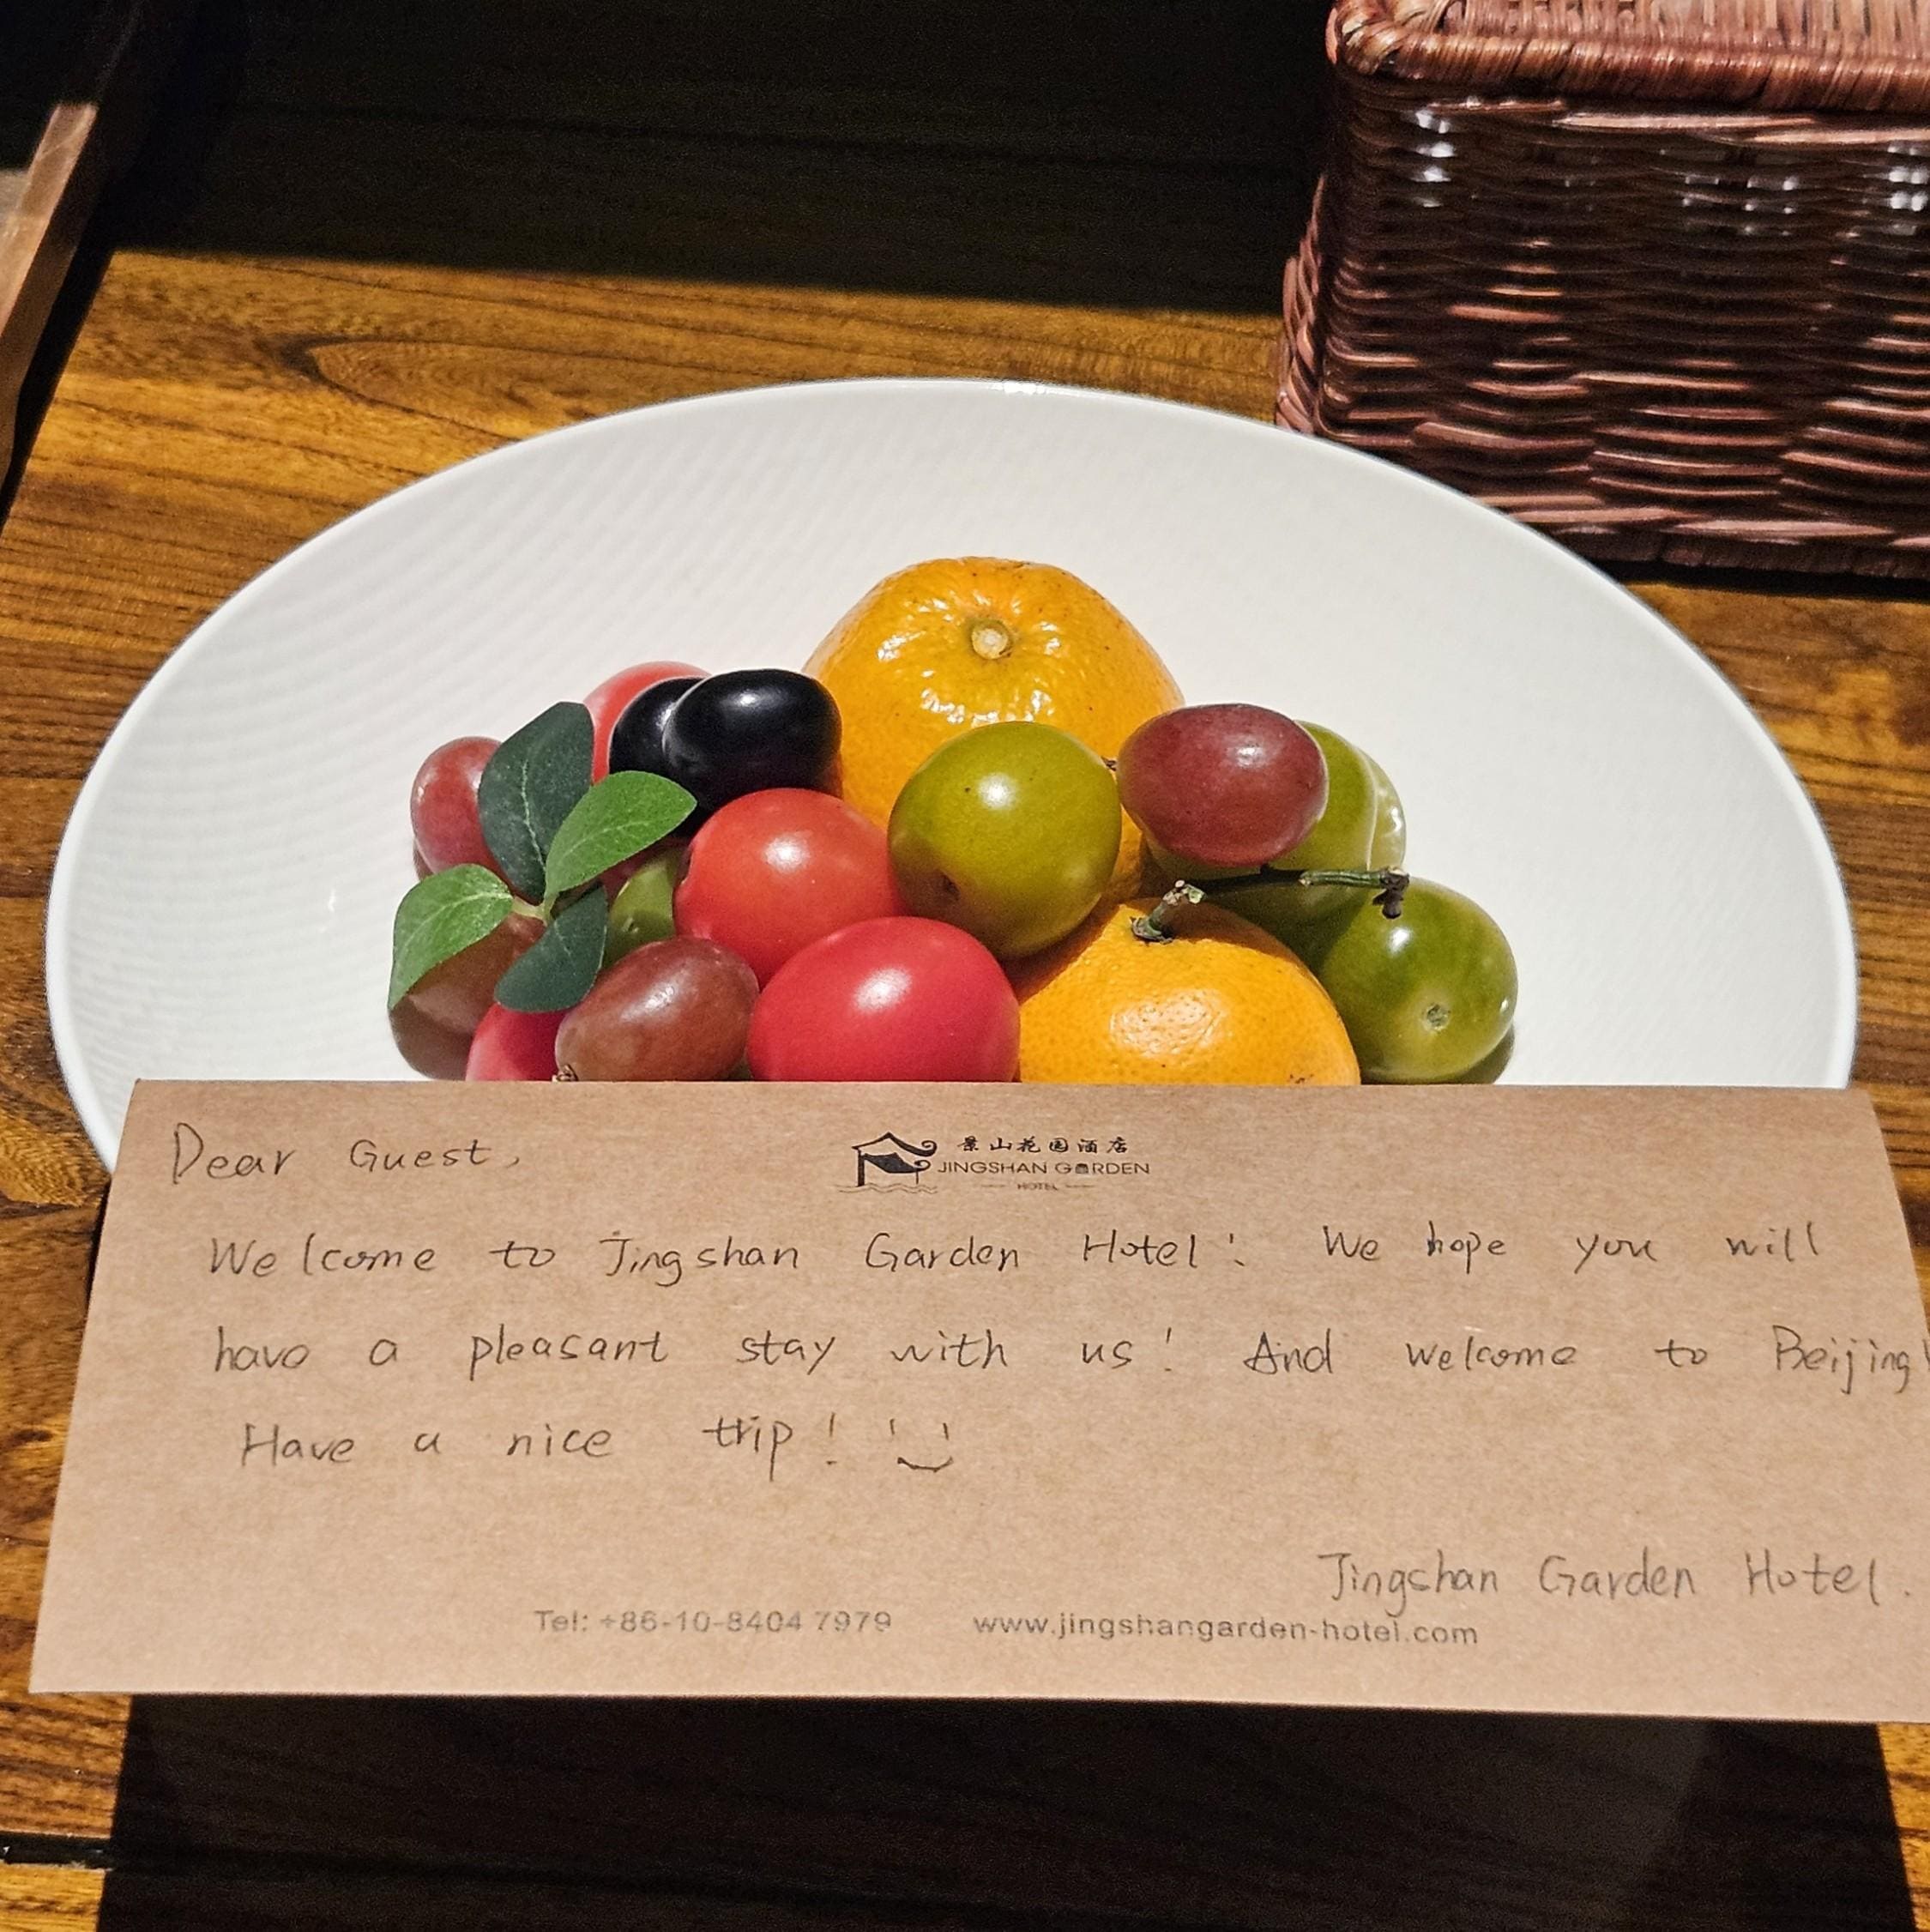 Dear Guest,
景山花园酒店
JINGSHAN GARDEN
HOTEL
Welcome to Jingshan Garden Hotel! We hope you will
have a pleasant stay with us! And welcome to Beijing!
Have a nice trip!
Jingshan Garden Hotel.
Tel: +86-10-8404 7979 www.jingshangarden-hotel.com